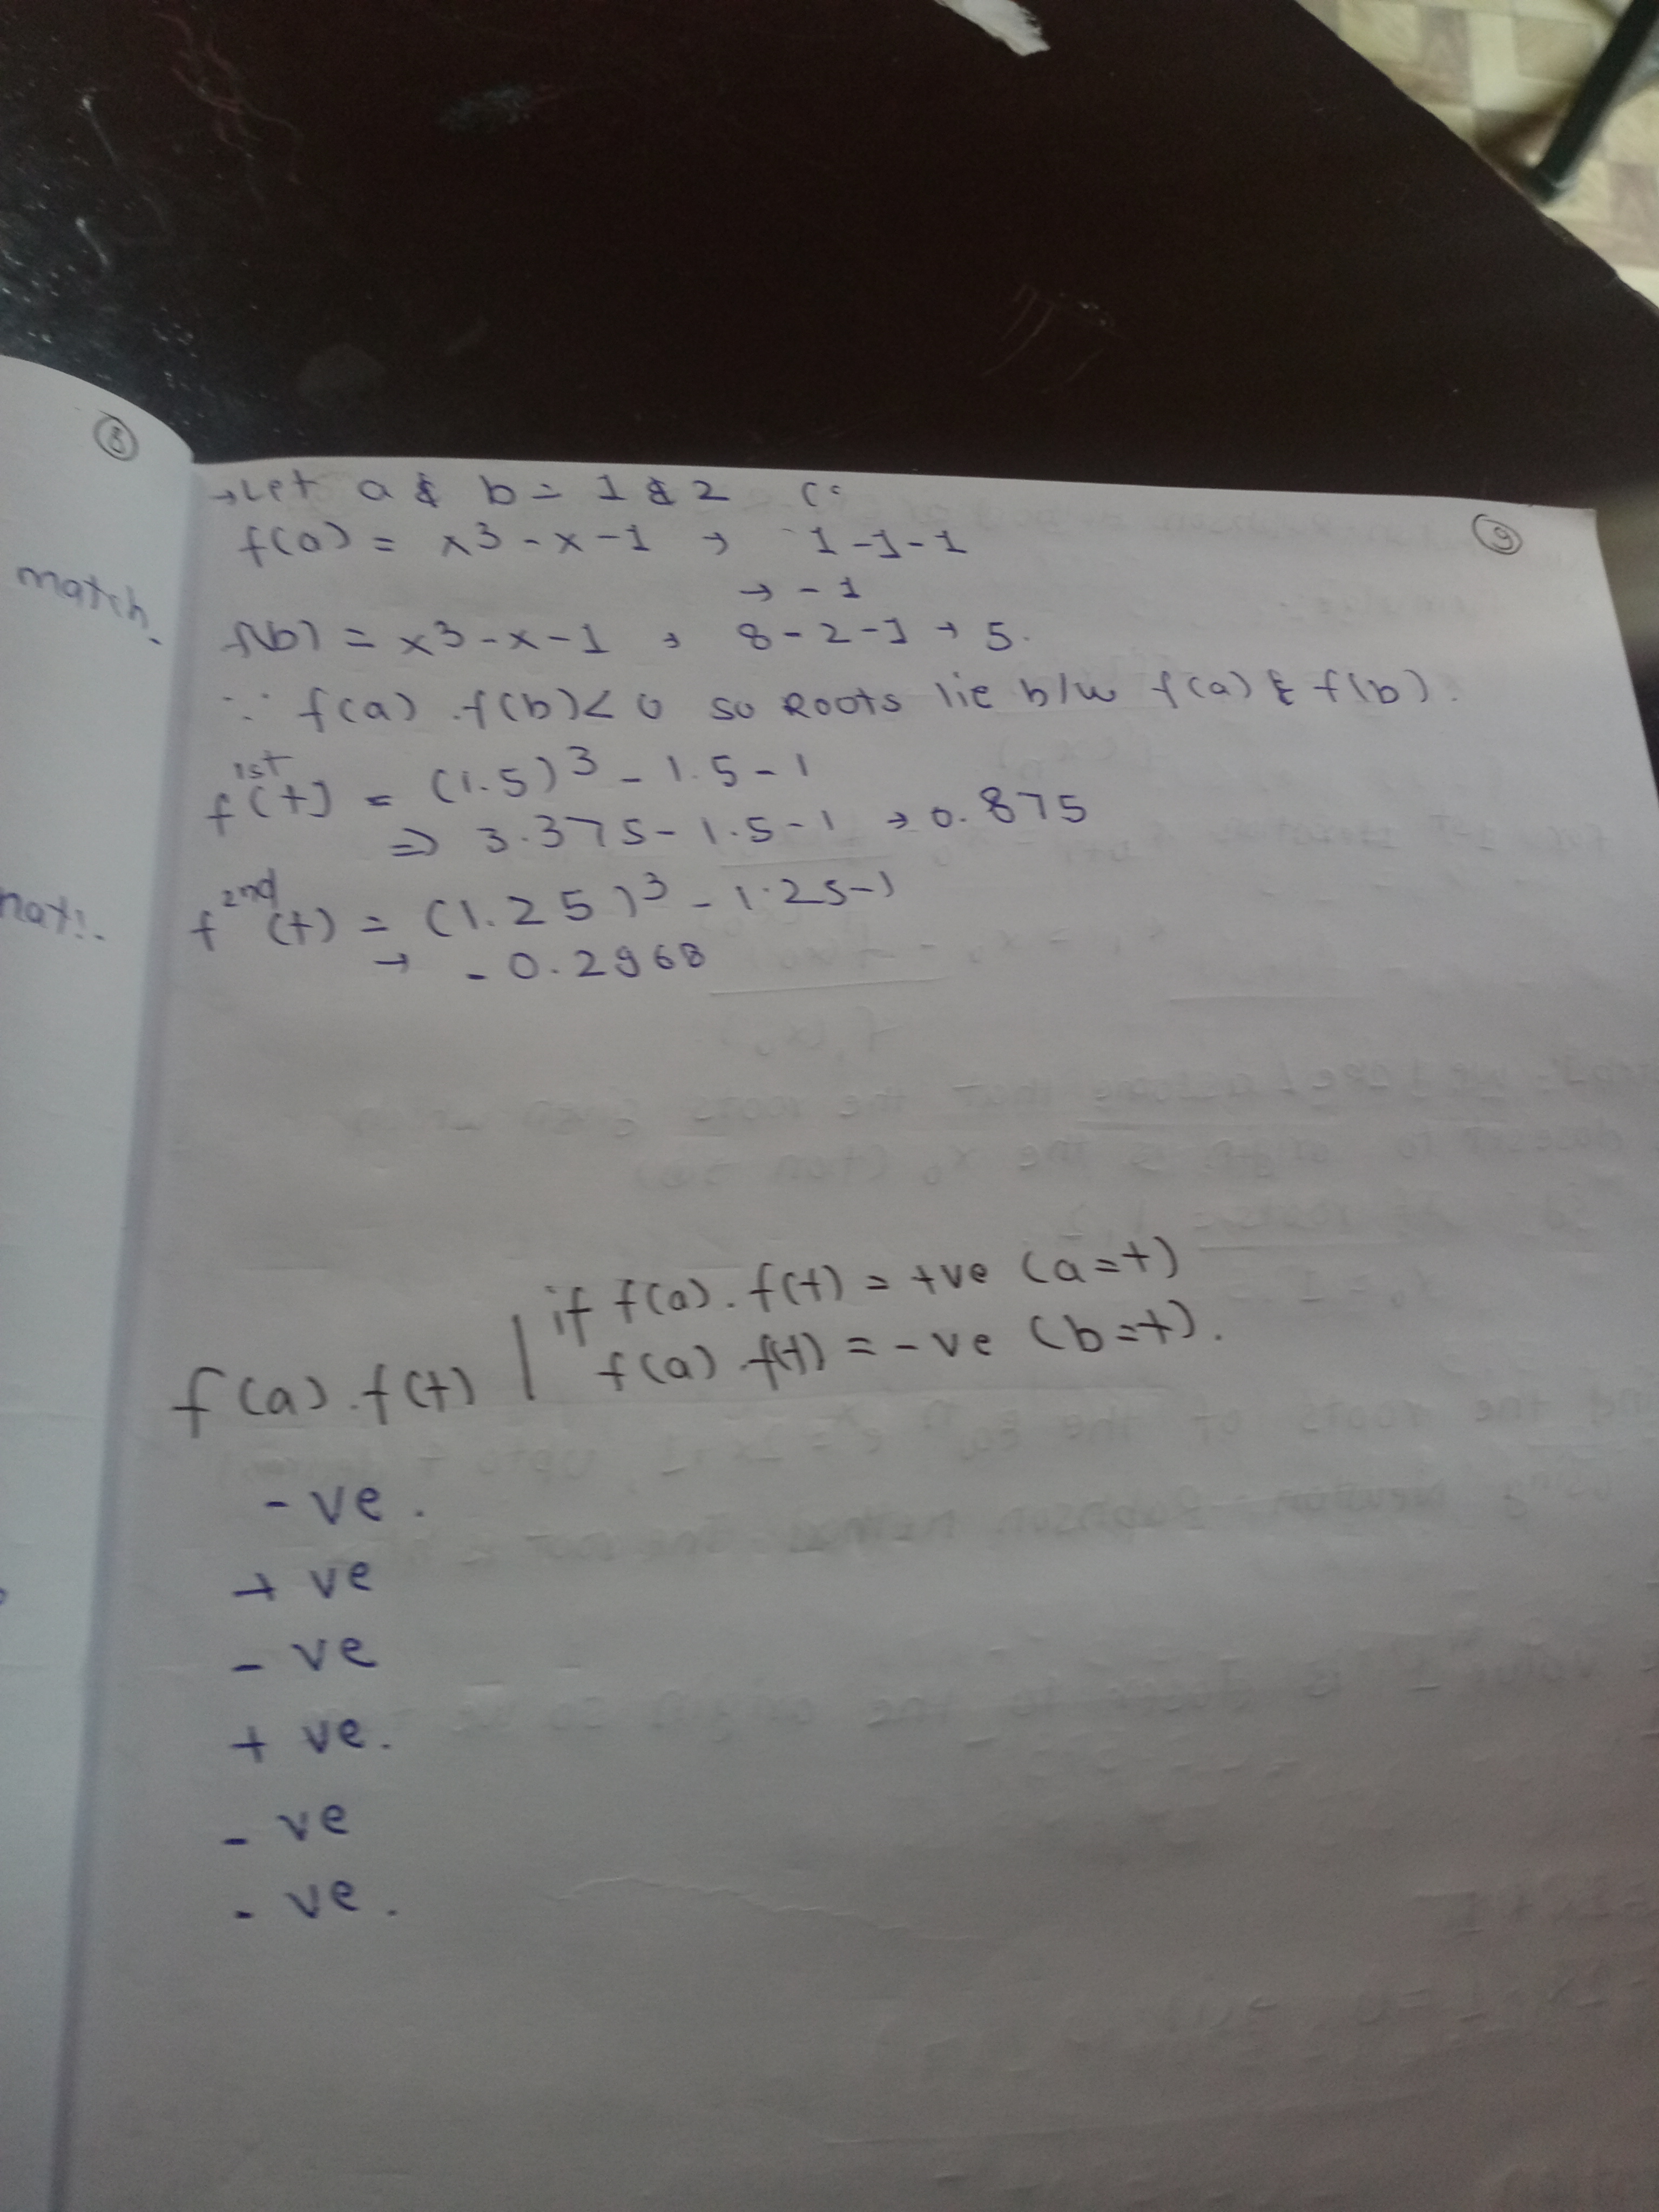 8
match.
nat:.
→ Let a & b = 1 & 2
9
f(a) = x3 - x - 1 → 1 - 1 - 1
→ - 1
f(b) = x3 - x - 1 → 8 - 2 - 1 → 5.
∵ f(a) . f(b) < 0 so Roots lie b/w f(a) & f(b).
1st
f(t) = (1.5)3 - 1.5 - 1
⇒ 3.375 - 1.5 - 1 → 0.875
f2nd(t) = (1.25)3 - 1.25 - 1
→ - 0.2968
if f(a) . f(t) = +ve (a=t)
f(a) . f(t) = -ve (b=t).
f(a) . f(t)
- ve .
+ ve
- ve
+ ve.
- ve
- ve .